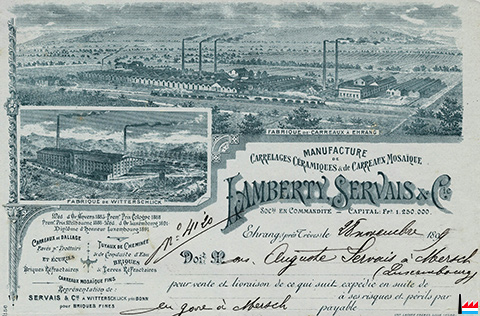 FABRIQUE DE CARREAUX À EHRANG
MANUFACTURE
DE
CARRELAGES CÉRAMIQUES & de CARREAUX MOSAÏQUE
LAMBERTY, SERVAIS & Cie
SOCté EN COMMANDITE — CAPITAL Frs 1.250.000.
FABRIQUE DE WITTERSCHLICK
Diplôme d'honneur Luxembourg 1891.
CARREAUX DE DALLAGE
Pavés pr Trottoirs
ET ÉCURIES
Briques Réfractaires
TUYAUX DE CHEMINÉE
& de Conduite d'Eau
BRIQUES
& Terres Réfractaires
CARREAUX MOSAÏQUE FINS
Représentation de:
SERVAIS & Cie à WITTERSCHLICK près BONN
pour BRIQUES FINES
No 4120
Ehrang, près Trèves, le novembre 189
Doit Mons. Auguste Servais à Mersch
(Luxembourg)
pour vente et livraison de ce qui suit, expédié en suite de
à ses risques et périls par
en gare à Mersch payable